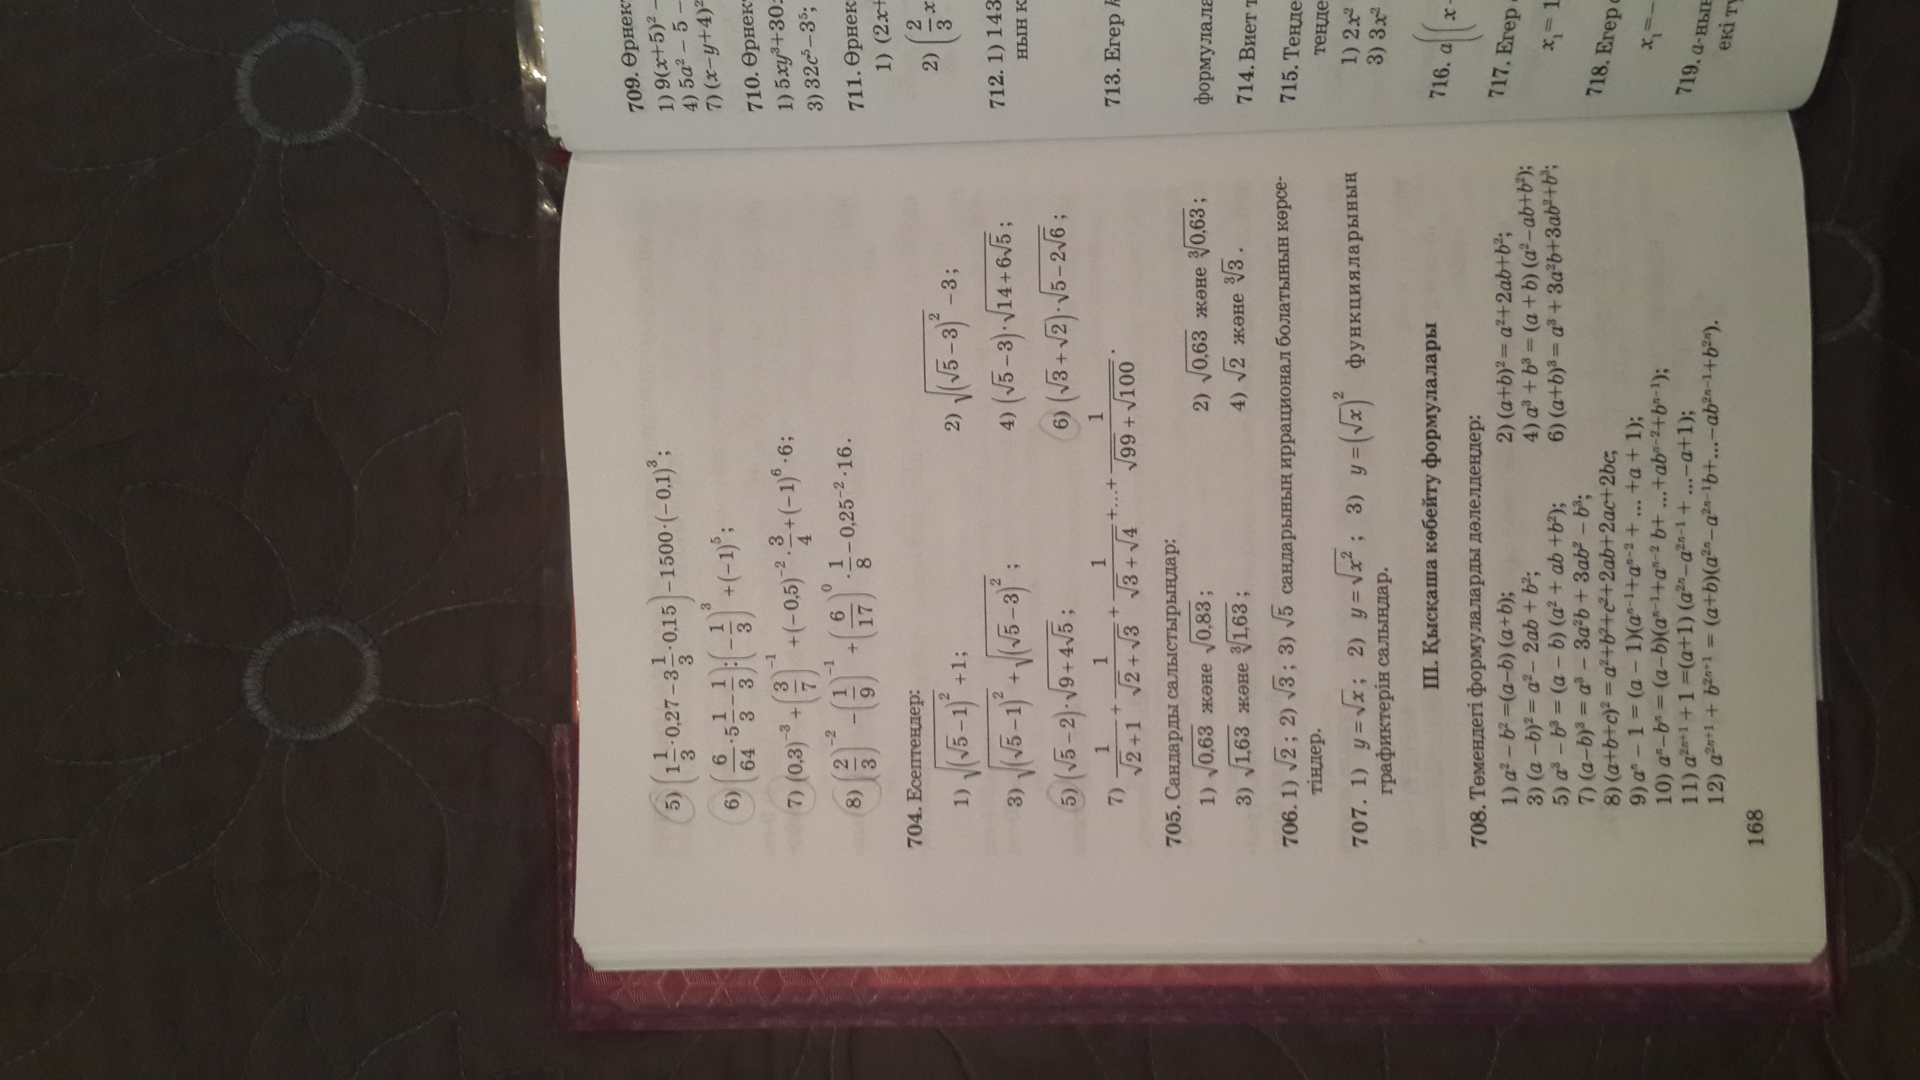 5) (1 1/3 · 0,27 − 3 1/3 · 0,15) − 1500 · (−0,1)³;
6) (6/64 · 5 1/3 − 1/3) : (−1/3)³ + (−1)⁵;
7) (0,3)⁻³ + (3/7)⁻¹ + (−0,5)⁻² · 3/4 + (−1)⁶ · 6;
8) (2/3)⁻² − (1/9)⁻¹ + (6/17)⁰ · 1/8 − 0,25⁻² · 16.
704. Есептеңдер:
1) √((√5 − 1)²) + 1; 2) √((√5 − 3)²) − 3;
3) √((√5 − 1)²) + √((√5 − 3)²); 4) (√5 − 3) · √(14 + 6√5);
5) (√5 − 2) · √(9 + 4√5); 6) (√3 + √2) · √(5 − 2√6);
7) 1/(√2 + 1) + 1/(√2 + √3) + 1/(√3 + √4) + ... + 1/(√99 + √100).
705. Сандарды салыстырыңдар:
1) √0,63 және √0,83; 2) √0,63 және ∛0,63;
3) √1,63 және ∛1,63; 4) √2 және ∛3.
706. 1) √2; 2) √3; 3) √5 сандарының иррационал болатынын көрсе-
тіңдер.
707. 1) y = √x; 2) y = √x²; 3) y = (√x)² функцияларының
графиктерін салыңдар.
III. Қысқаша көбейту формулалары
708. Төмендегі формулаларды дәлелдеңдер:
1) a² − b² = (a−b) (a+b); 2) (a+b)² = a²+2ab+b²;
3) (a −b)² = a² − 2ab + b²; 4) a³ + b³ = (a + b) (a² −ab+b²);
5) a³ − b³ = (a − b) (a² + ab +b²); 6) (a+b)³ = a³ + 3a²b+3ab²+b³;
7) (a−b)³ = a³ − 3a²b + 3ab² − b³;
8) (a+b+c)² = a²+b²+c²+2ab+2ac+2bc;
9) aⁿ − 1 = (a − 1)(aⁿ⁻¹+aⁿ⁻² + ... +a + 1);
10) aⁿ−bⁿ = (a−b)(aⁿ⁻¹+aⁿ⁻² b+ ...+abⁿ⁻²+bⁿ⁻¹);
11) a²ⁿ⁺¹ +1 =(a+1) (a²ⁿ−a²ⁿ⁻¹ + ...−a+1);
12) a²ⁿ⁺¹ + b²ⁿ⁺¹ = (a+b)(a²ⁿ−a²ⁿ⁻¹b+...−ab²ⁿ⁻¹+b²ⁿ).
168
709. Өрнек
1) 9(x+5)² −
4) 5a² − 5 −
7) (x−y+4)²
710. Өрнек
1) 5xy³+30
3) 32c⁵−3⁵;
711. Өрнек
1) (2x+
2) (2/3 x
712. 1) 143
нын к
713. Егер
формулала
714. Виет т
715. Теңде
теңде
1) 2x²
3) 3x²
716. a((x
717. Егер
x₁ = 1
718. Егер
x₁ = −
719. a-ның
екі тү